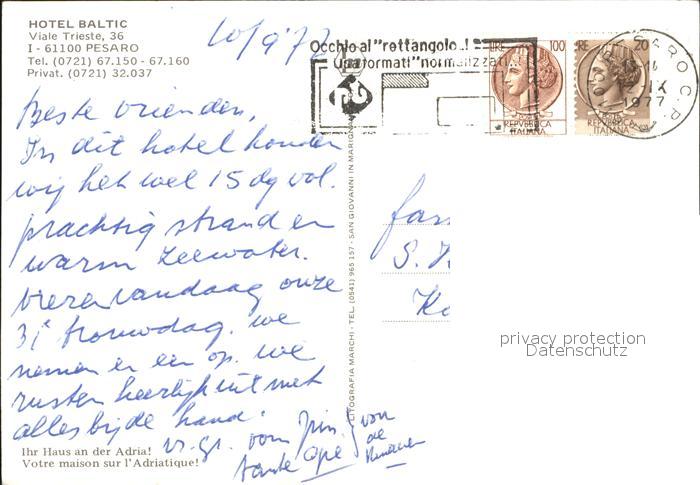 HOTEL BALTIC
Viale Trieste, 36
I - 61100 PESARO
Tel. (0721) 67.150 - 67.160
Privat. (0721) 32.037
10/9'77
Occhio al "rettangolo..!
Usa formati "normalizzati.!
LIRE 100
LIRE 20
REPVBBLICA ITALIANA
REPVBBLICA ITALIANA
PESARO C.P.
IX
1977
Beste vrienden,
In dit hotel houden
wij het wel 15 dg vol.
prachtig strand en
warm zeewater.
vieren vandaag onze
31e trouwdag. we
nemen er een op. we
rusten heerlijk uit met
alles bij de hand.
vr. gr. von
tante
von
de
LITOGRAFIA MARCHI - TEL. (0541) 965 157 - SAN GIOVANNI IN MARIGNANO
fam
S.
Ko
privacy protection
Datenschutz
Ihr Haus an der Adria!
Votre maison sur l'Adriatique!